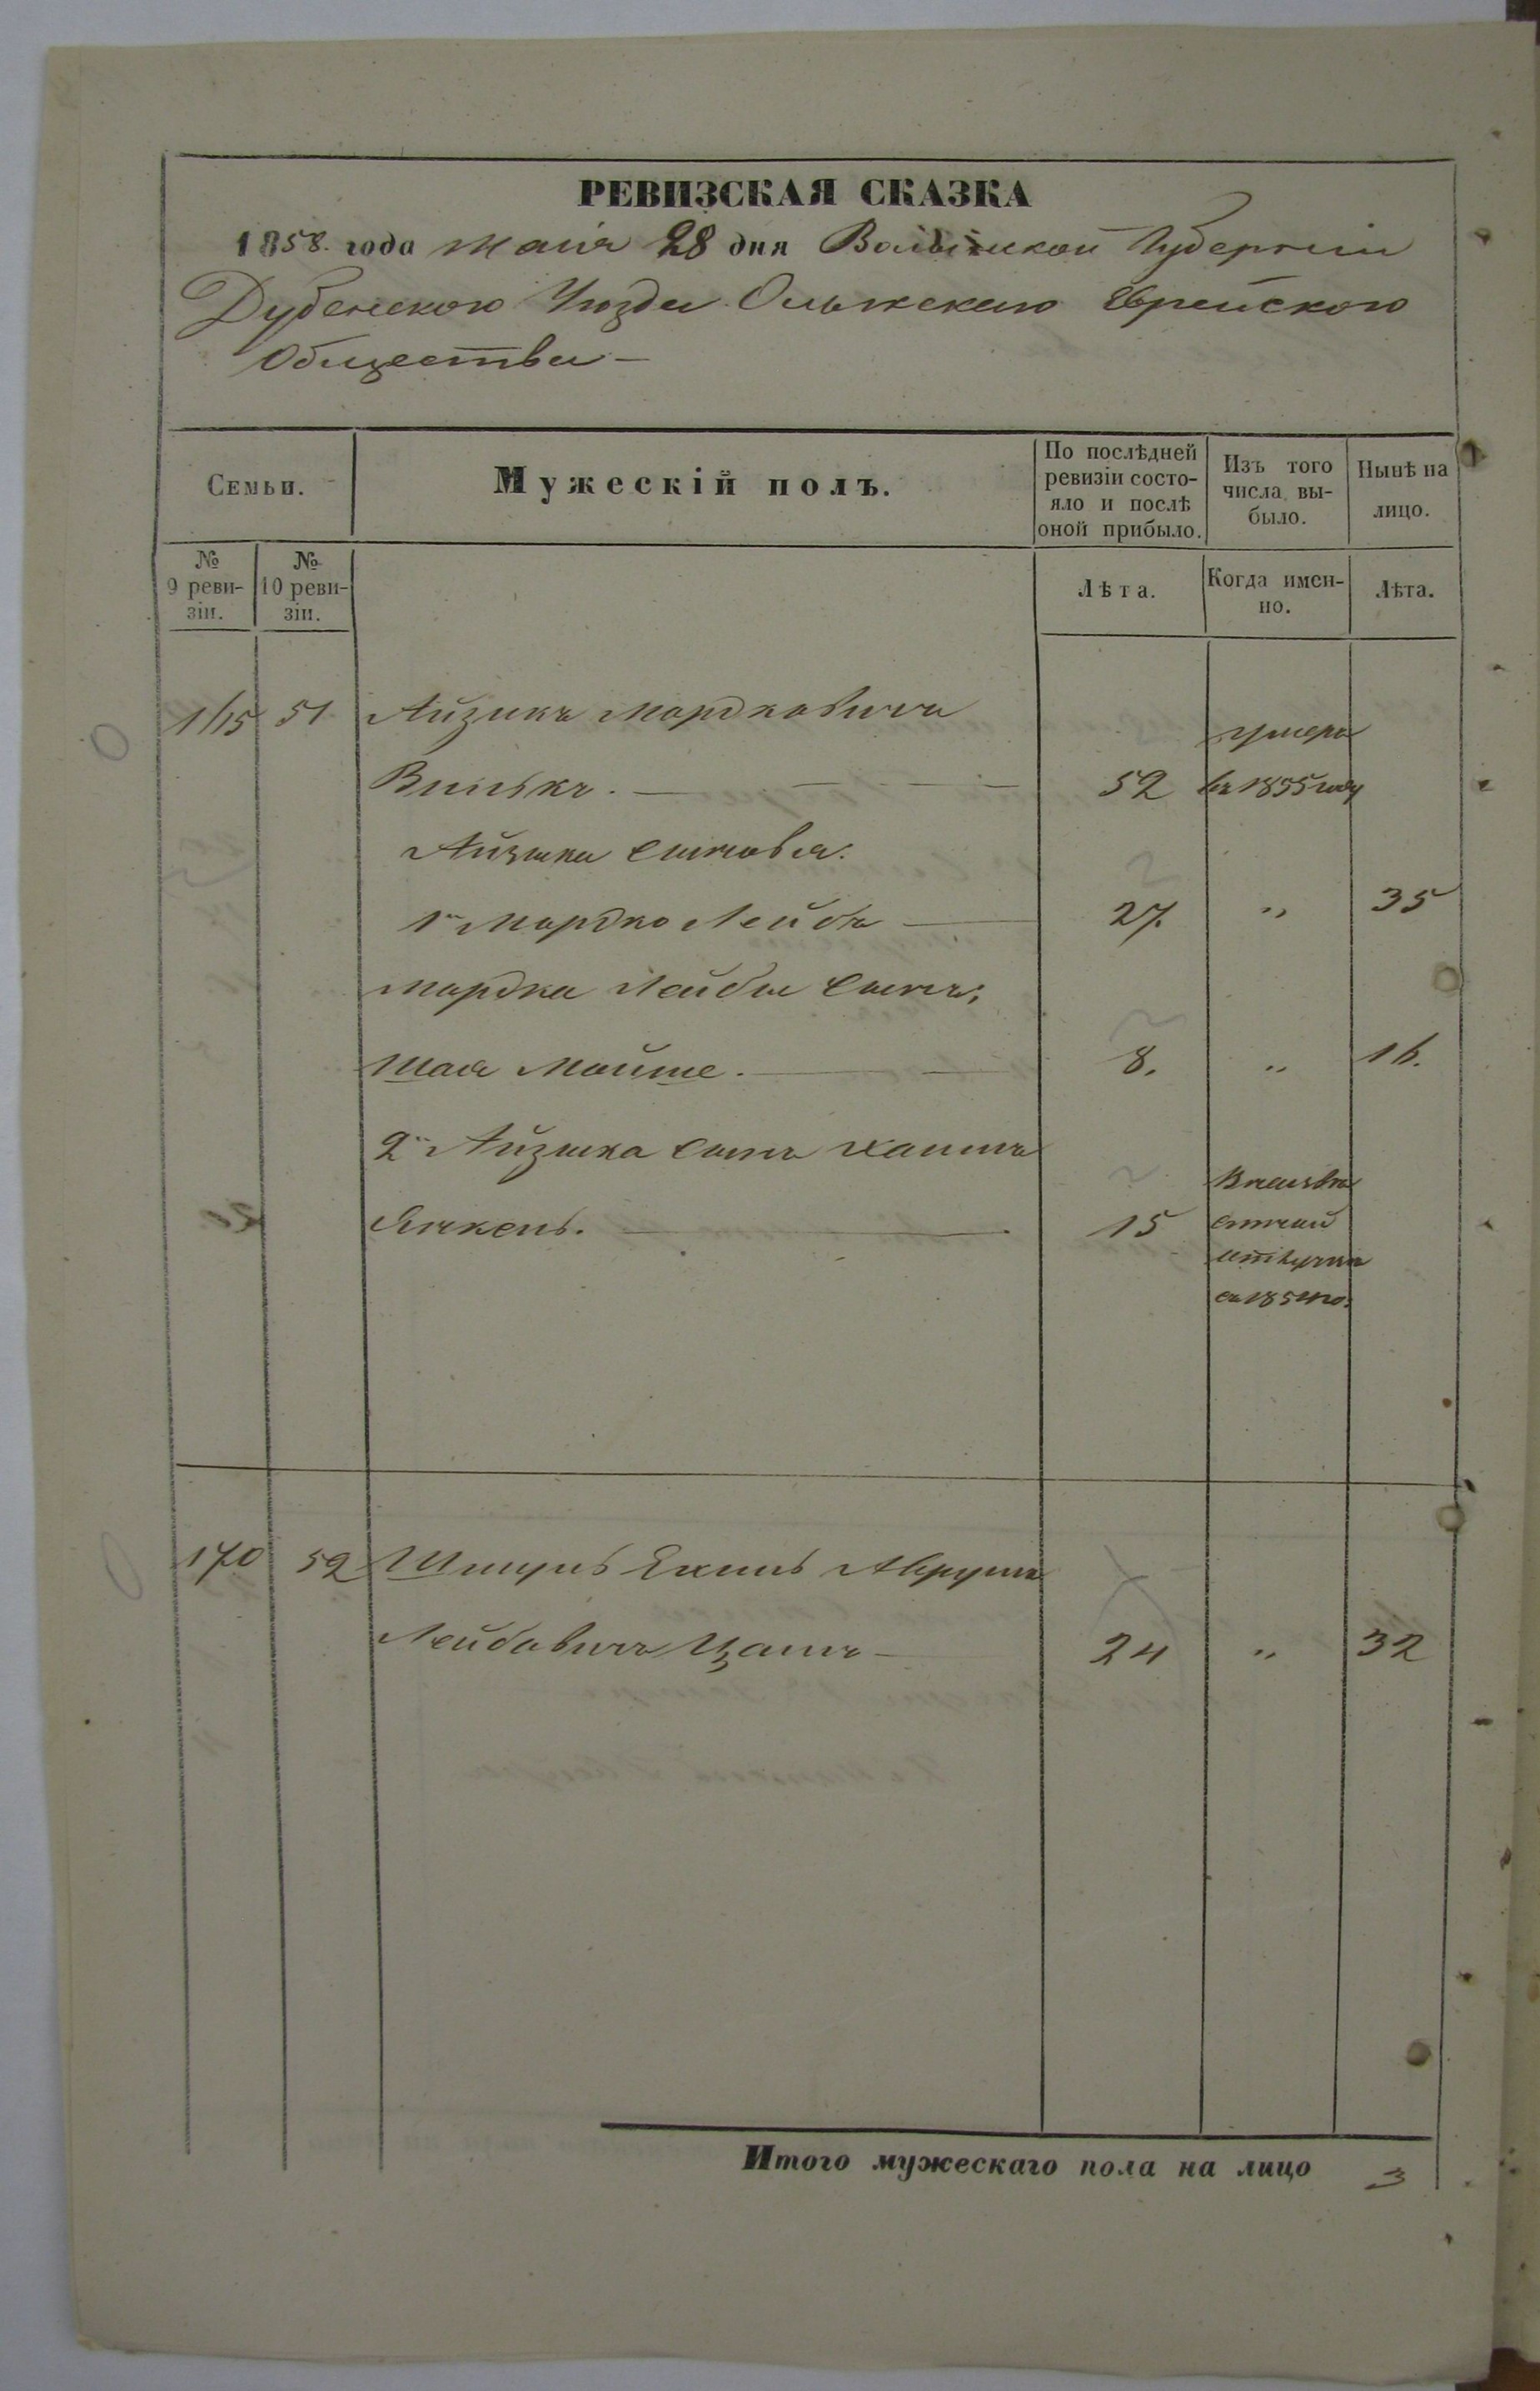 РЕВИЗСКАЯ СКАЗКА
1858. года маія 28 дня Волынской Губерніи
Дубенскаго Уѣзда Олыкскаго Еврейскаго
Общества —
Семьи.
Мужескій полъ.
По послѣдней ревизіи состо-
яло и послѣ
оной прибыло.
Изъ того
числа вы-
было.
Нынѣ на
лицо.
№
9 реви-
зіи.
№
10 реви-
зіи.
Лѣта.
Когда имен-
но.
Лѣта.
115 51 Айзикъ Мордковичъ
умеръ
52 въ 1855 году
Айзика сыновья:
1й Мордко Лейбъ 27. „ 35
Мордка Лейбы сынъ,
Шая Мойше. 8. „ 16.
2й Айзика сынъ Хаимъ
Янкель. 15
170 52 Шмуль Екиль Аврумъ
Лейбовичъ Цамъ 24 „ 32
Итого мужескаго пола на лицо 3